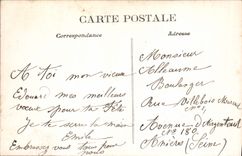 CARTE POSTALE
Correspondance
Adresse
A toi mon vieux
Edouard mes meilleurs
vœux pour ta fête
Je te serre la main
Emile
Embrassez vous tous pour
nous
Monsieur
Boulanger
Rue Villebois
Avenue d'Argenteuil
No 180
Asnières (Seine)